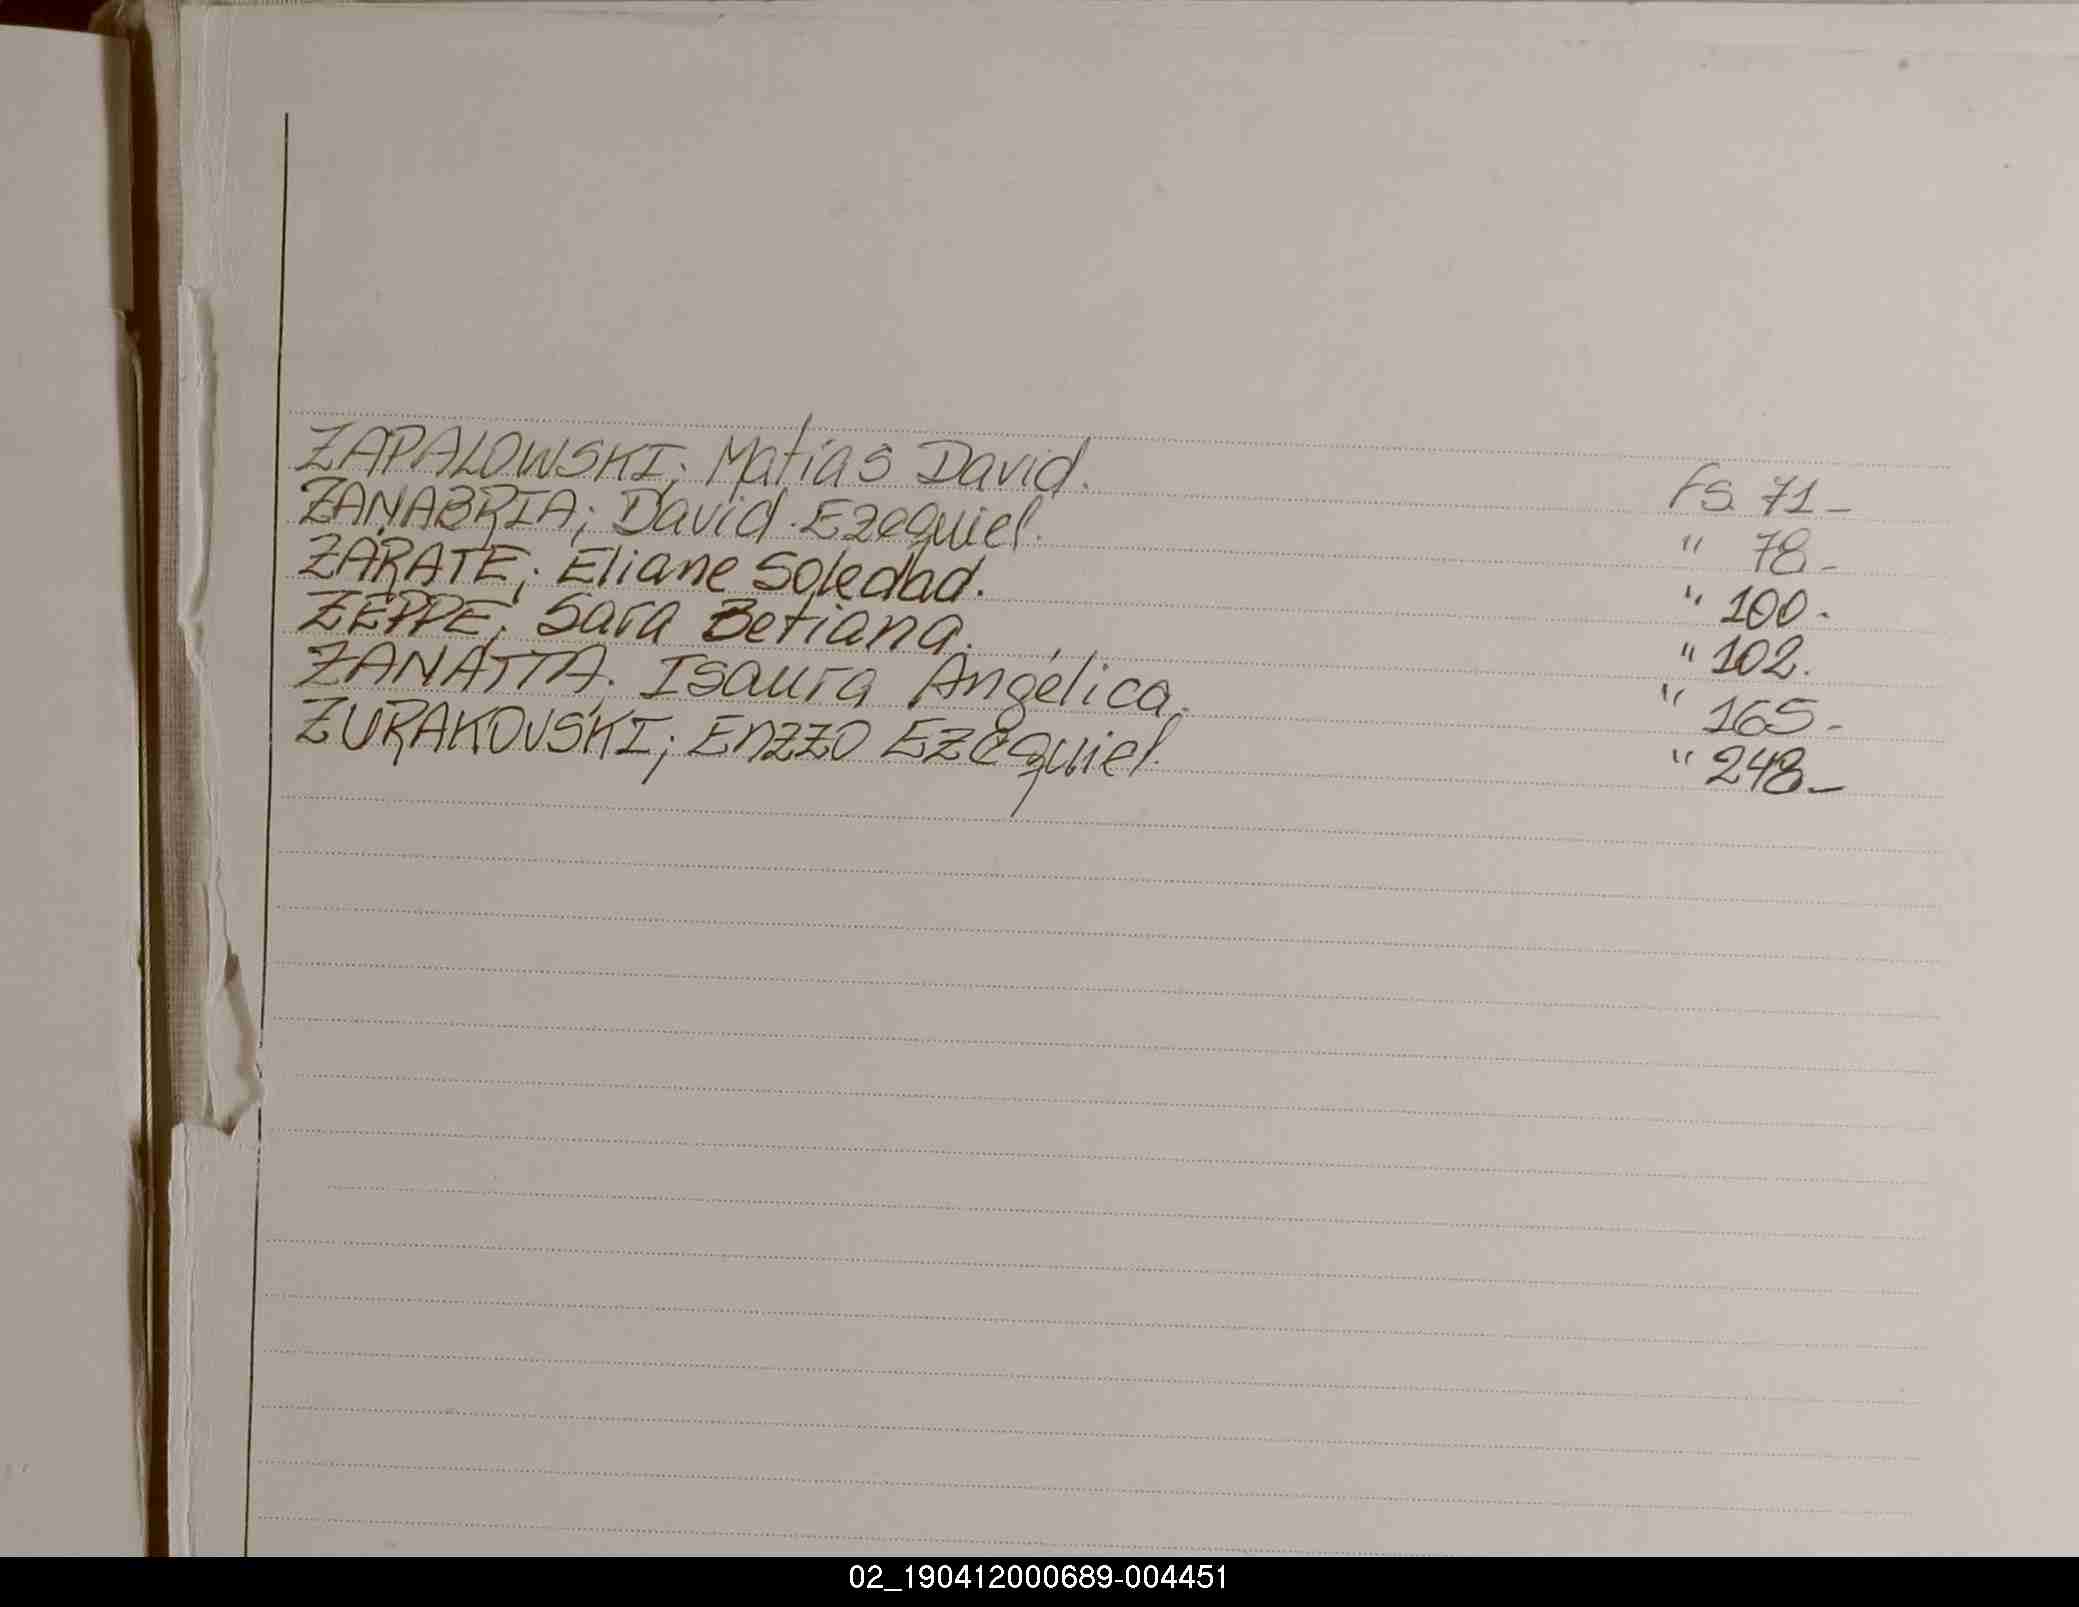 ZAPALOWSKI; Matías David. Fs. 71-
ZANABRIA; David Ezequiel. " 78-
ZÁRATE; Eliane Soledad. " 100-
ZEPPE; Sara Betiana. " 102.
ZANATTA; Isaura Angélica. " 165-
ZURAKOVSKI; Enzzo Ezequiel. " 248-
02_190412000689-004451